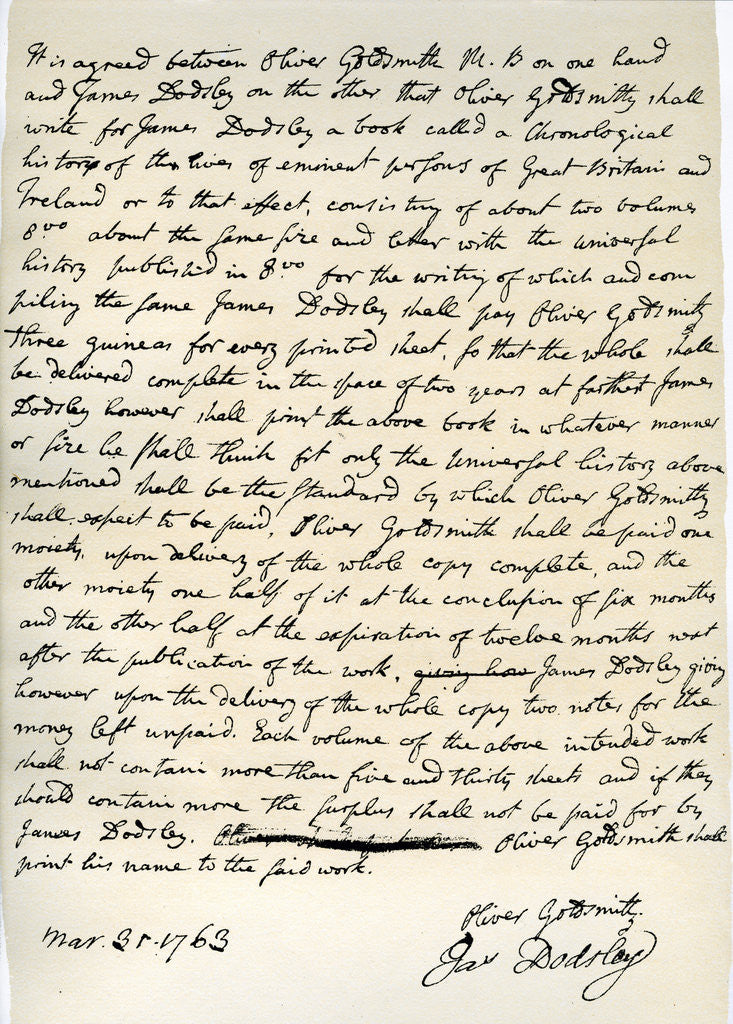 It is agreed between Oliver Goldsmith M. B on one hand
and James Dodsley on the other that Oliver Goldsmith shall
write for James Dodsley a book called a Chronological
history of the lives of eminent persons of Great Britain and
Ireland or to that effect, consisting of about two volumes
8.vo about the same size and letter with the universal
history published in 8.vo for the writing of which and com
piling the same James Dodsley shall pay Oliver Goldsmith
three guineas for every printed sheet, so that the whole shall
be delivered complete in the space of two years at farthest James
Dodsley however shall print the above book in whatever manner
or size he shall think fit only the Universal history above
mentioned shall be the standard by which Oliver Goldsmith
shall expect to be paid. Oliver Goldsmith shall be paid one
moiety, upon delivery of the whole copy complete, and the
other moiety one half of it at the conclusion of six months
and the other half at the expiration of twelve months next
after the publication of the work, giving how James Dodsley giving
however upon the delivery of the whole copy two notes for the
money left unpaid. Each volume of the above intended work
shall not contain more than five and thirty sheets and if they
should contain more the surplus shall not be paid for by
James Dodsley. Oliver Goldsmith shall
print his name to the said work.
Oliver Goldsmith.
Mar. 31. 1763
Jas Dodsley